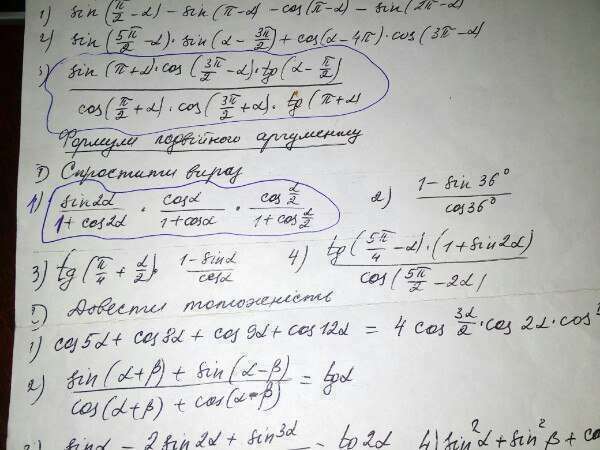 1) sin(π/2 - α) - sin(π - α) - cos(π - α) - sin(2π - α)
2) sin(5π/2 - α) · sin(α - 3π/2) + cos(α - 4π) · cos(3π - α)
3) sin(π + α) · cos(3π/2 - α) · tg(α - π/2)
cos(π/2 + α) · cos(3π/2 + α) · tg(π + α
Формули подвійного аргументу
I) Спростити вираз
1) sin2α/1 + cos2α · cosα/1 + cosα · cos α/2 / 1 + cos α/2 2) 1 - sin 36° / cos36°
3) tg(π/4 + α/2) · 1 - sinα / cosα 4) tg(5π/4 - α) · (1 + sin2α) / cos(5π/2 - 2α)
II) Довести тотожність
1) cos5α + cos8α + cos9α + cos12α = 4 cos 3α/2 · cos 2α · cos
2) sin(α+β) + sin(α-β) / cos(α+β) + cos(α-β) = tgα
sinα - 2sin2α + sin3α = tg2α 4) sin²α + sin²β + co